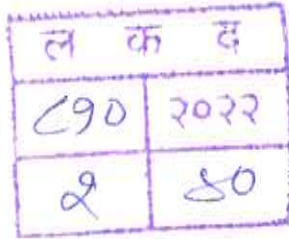 ल क द
८९० २०२२
२ ४०